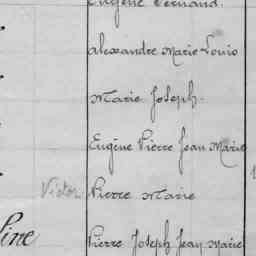 Eugène Fernand.
Alexandre Marie Louis
Marie Joseph.
Eugène Pierre Jean Marie
Victor Pierre Marie
line Pierre Joseph Jean Marie